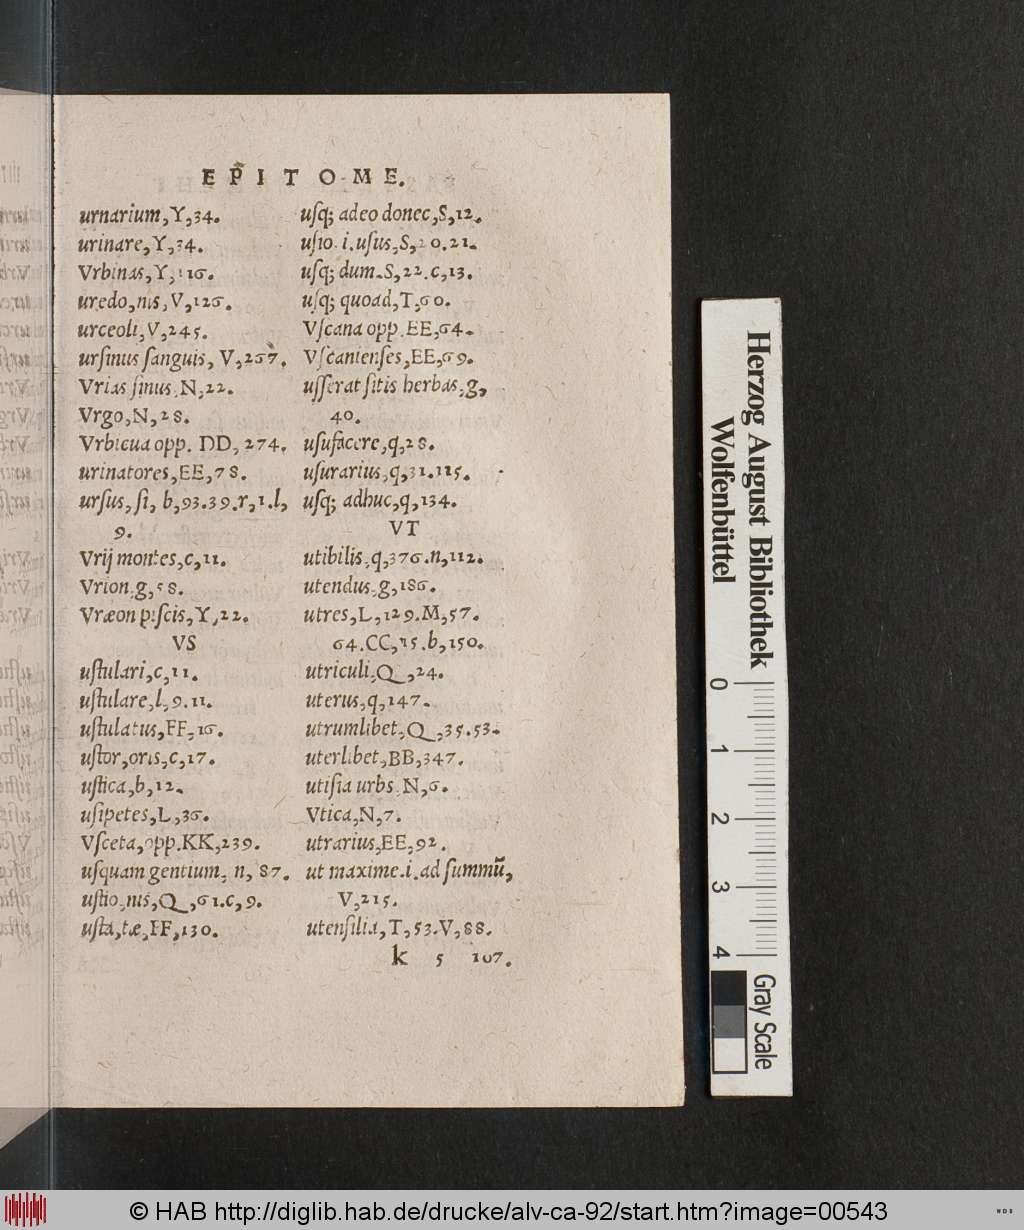 EPITOME.
urnarium,Y,34.
urinare,Y,34.
Vrbinas,Y,116.
uredo,nis,V,126.
urceoli,V,245.
ursinus sanguis, V,267.
Vrias sinus,N,22.
Vrgo,N,28.
Vrbicua opp. DD,274.
urinatores,EE,78.
ursus,si, b,93.39.r,1.l,
9.
Vrij montes,c,11.
Vrion,g,58.
Vræon piscis,Y,22.
VS
ustulari,c,11.
ustulare,l,9.11.
ustulatus,FF,16.
ustor,oris,c,17.
ustica,b,12.
usipetes,L,36.
Vsceta,opp.KK,239.
usquam gentium, n, 87.
ustio,nis,Q,61.c,9.
usta,tæ,FF,130.
usq; adeo donec,S,12.
usio.i.usus,S,20.21.
usq; dum.S,22.c,13.
usq; quoad,T,60.
Vscana opp.EE,64.
Vscanienses,EE,69.
usserat sitis herbas,g,
40.
usufacere,q,28.
usurarius,q,31.115.
usq; adhuc,q,134.
VT
utibilis,q,376.n,112.
utendus,g,186.
utres,L,129.M,57.
64.CC,15.b,150.
utriculi,Q,24.
uterus,q,147.
utrumlibet,Q,35.53.
uterlibet,BB,347.
utisia urbs,N,6.
Vtica,N,7.
utrarius,EE,92.
ut maxime.i.ad summũ,
V,215.
utensilia,T,53.V,88.
k 5 107.
Herzog August Bibliothek
Wolfenbüttel
0 1 2 3 4
Gray Scale
© HAB http://diglib.hab.de/drucke/alv-ca-92/start.htm?image=00543